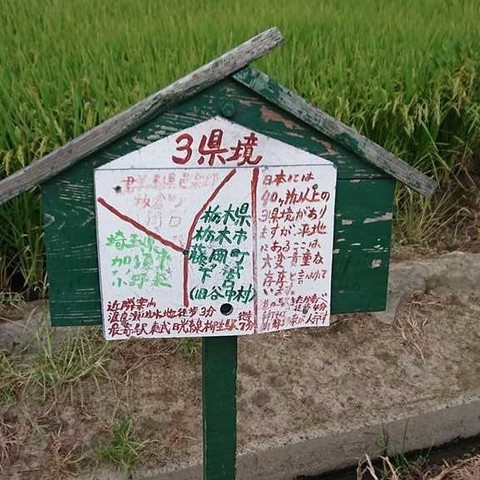 3県境
群馬県邑楽郡
板倉町
栃木県
栃木市
藤岡町
下宮
(旧谷中村)
埼玉県
加須市
小野袋
日本には
40ヶ所以上の
3県境があり
ますが平地
にあるここは
大変貴重な
存在と言われて
近隣案内
渡良瀬遊水地徒歩3分
最寄駅東武日光線柳生駅